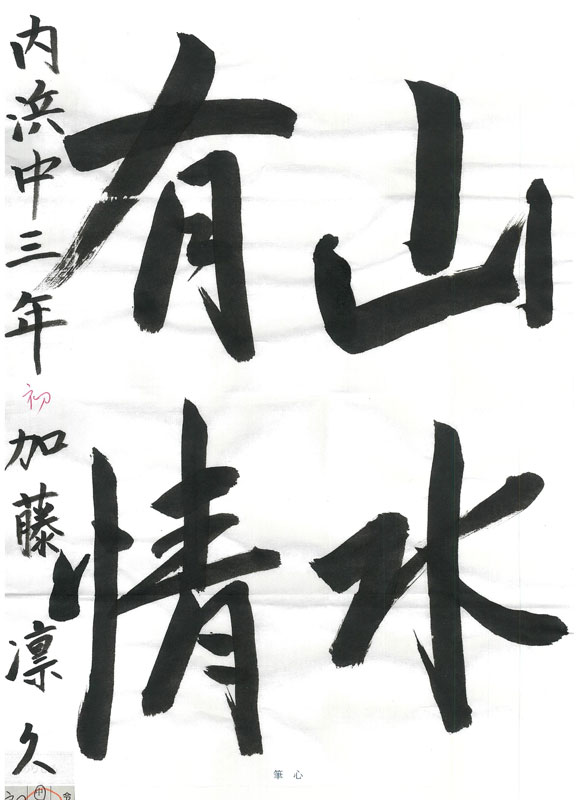 山水
有情
内浜中三年 初 加藤凛久
筆心